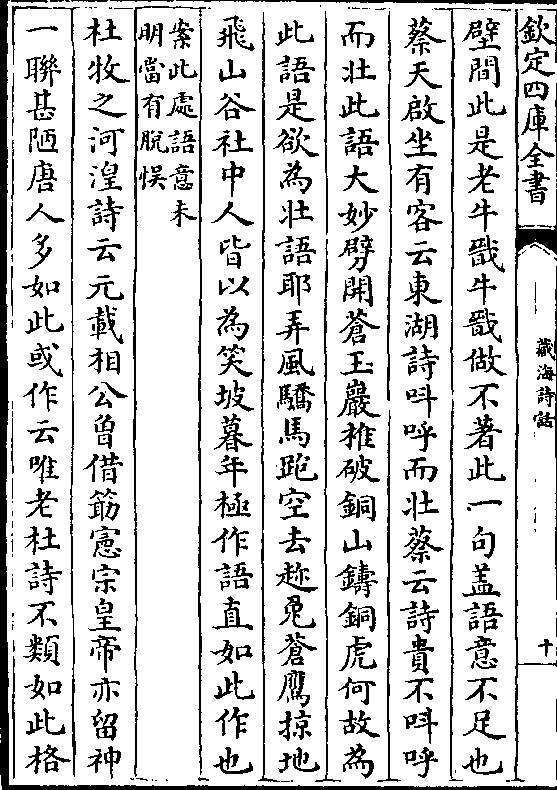 欽定四庫全書
藏海詩話
十
壁間此是老牛戩牛戩做不著此一句盖語意不足也
蔡天啟坐有客云東湖詩呌呼而壯蔡云詩貴不呌呼
而壯此語大妙劈開蒼玉巖椎破銅山鑄銅虎何故為
此語是欲為壯語耶弄風驕馬跑空去趂兎蒼鷹掠地
飛山谷社中人皆以為笑坡暮年極作語直如此作也
案此處語意未
明當有脫悮
杜牧之河湟詩云元載相公曾借筯憲宗皇帝亦留神
一聯甚陋唐人多如此或作云唯老杜詩不類如此格